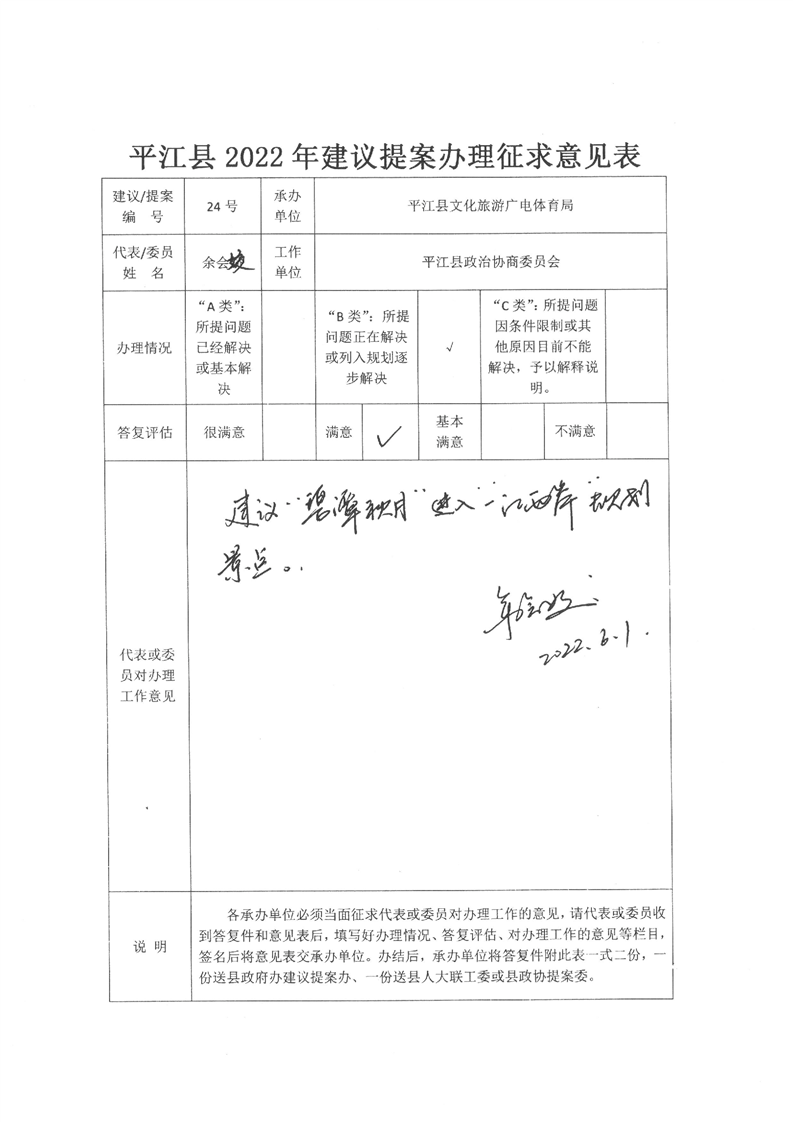 平江县 2022 年建议提案办理征求意见表
建议/提案
编 号
24 号
承办
单位
平江县文化旅游广电体育局
代表/委员
姓 名
余会
工作
单位
平江县政治协商委员会
办理情况
“A 类”：
所提问题
已经解决
或基本解
决
“B 类”：所提
问题正在解决
或列入规划逐
步解决
√
“C 类”：所提问题
因条件限制或其
他原因目前不能
解决，予以解释说
明。
答复评估
很满意
满意
✓
基本
满意
不满意
代表或委
员对办理
工作意见
建议“碧潭秋月”进入“一江两岸”规划
景点。
2022.6.1.
说 明
各承办单位必须当面征求代表或委员对办理工作的意见，请代表或委员收
到答复件和意见表后，填写好办理情况、答复评估、对办理工作的意见等栏目，
签名后将意见表交承办单位。办结后，承办单位将答复件附此表一式二份，一
份送县政府办建议提案办、一份送县人大联工委或县政协提案委。